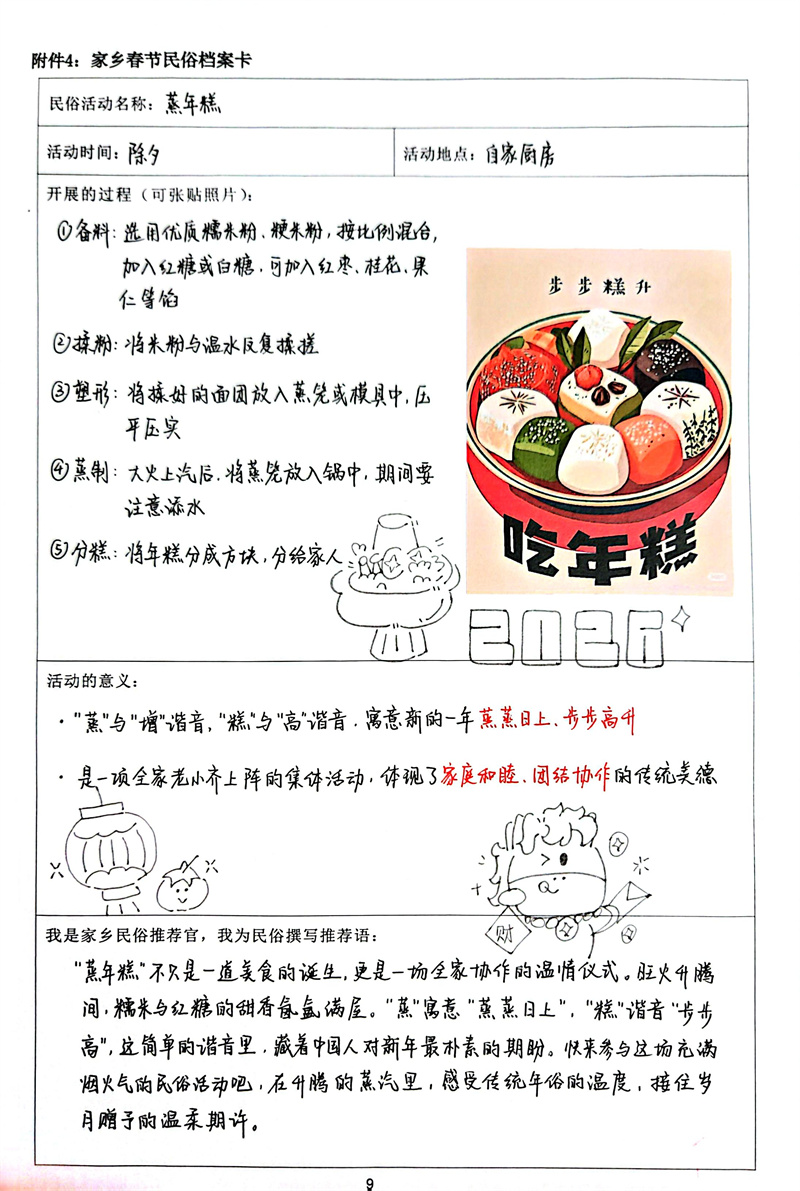 附件4：家乡春节民俗档案卡
民俗活动名称：蒸年糕
活动时间：除夕
活动地点：自家厨房
开展的过程（可张贴照片）：
①备料：选用优质糯米粉、粳米粉，按比例混合，
加入红糖或白糖，可加入红枣、桂花、果
仁等馅
②揉粉：将米粉与温水反复揉搓
③塑形：将揉好的面团放入蒸笼或模具中，压
平压实
④蒸制：大火上汽后，将蒸笼放入锅中，期间要
注意添水
⑤分糕：将年糕分成方块，分给家人
步步糕升
吃年糕
2026
活动的意义：
·"蒸"与"增"谐音，"糕"与"高"谐音，寓意新的一年蒸蒸日上、步步高升
·是一项全家老小齐上阵的集体活动，体现了家庭和睦、团结协作的传统美德
财
我是家乡民俗推荐官，我为民俗撰写推荐语：
"蒸年糕"不只是一道美食的诞生，更是一场全家协作的温情仪式。旺火升腾
间，糯米与红糖的甜香氤氲满屋。"蒸"寓意"蒸蒸日上"，"糕"谐音"步步
高"，这简单的谐音里，藏着中国人对新年最朴素的期盼。快来参与这场充满
烟火气的民俗活动吧，在升腾的蒸汽里，感受传统年俗的温度，接住岁
月赠予的温柔期许。
9